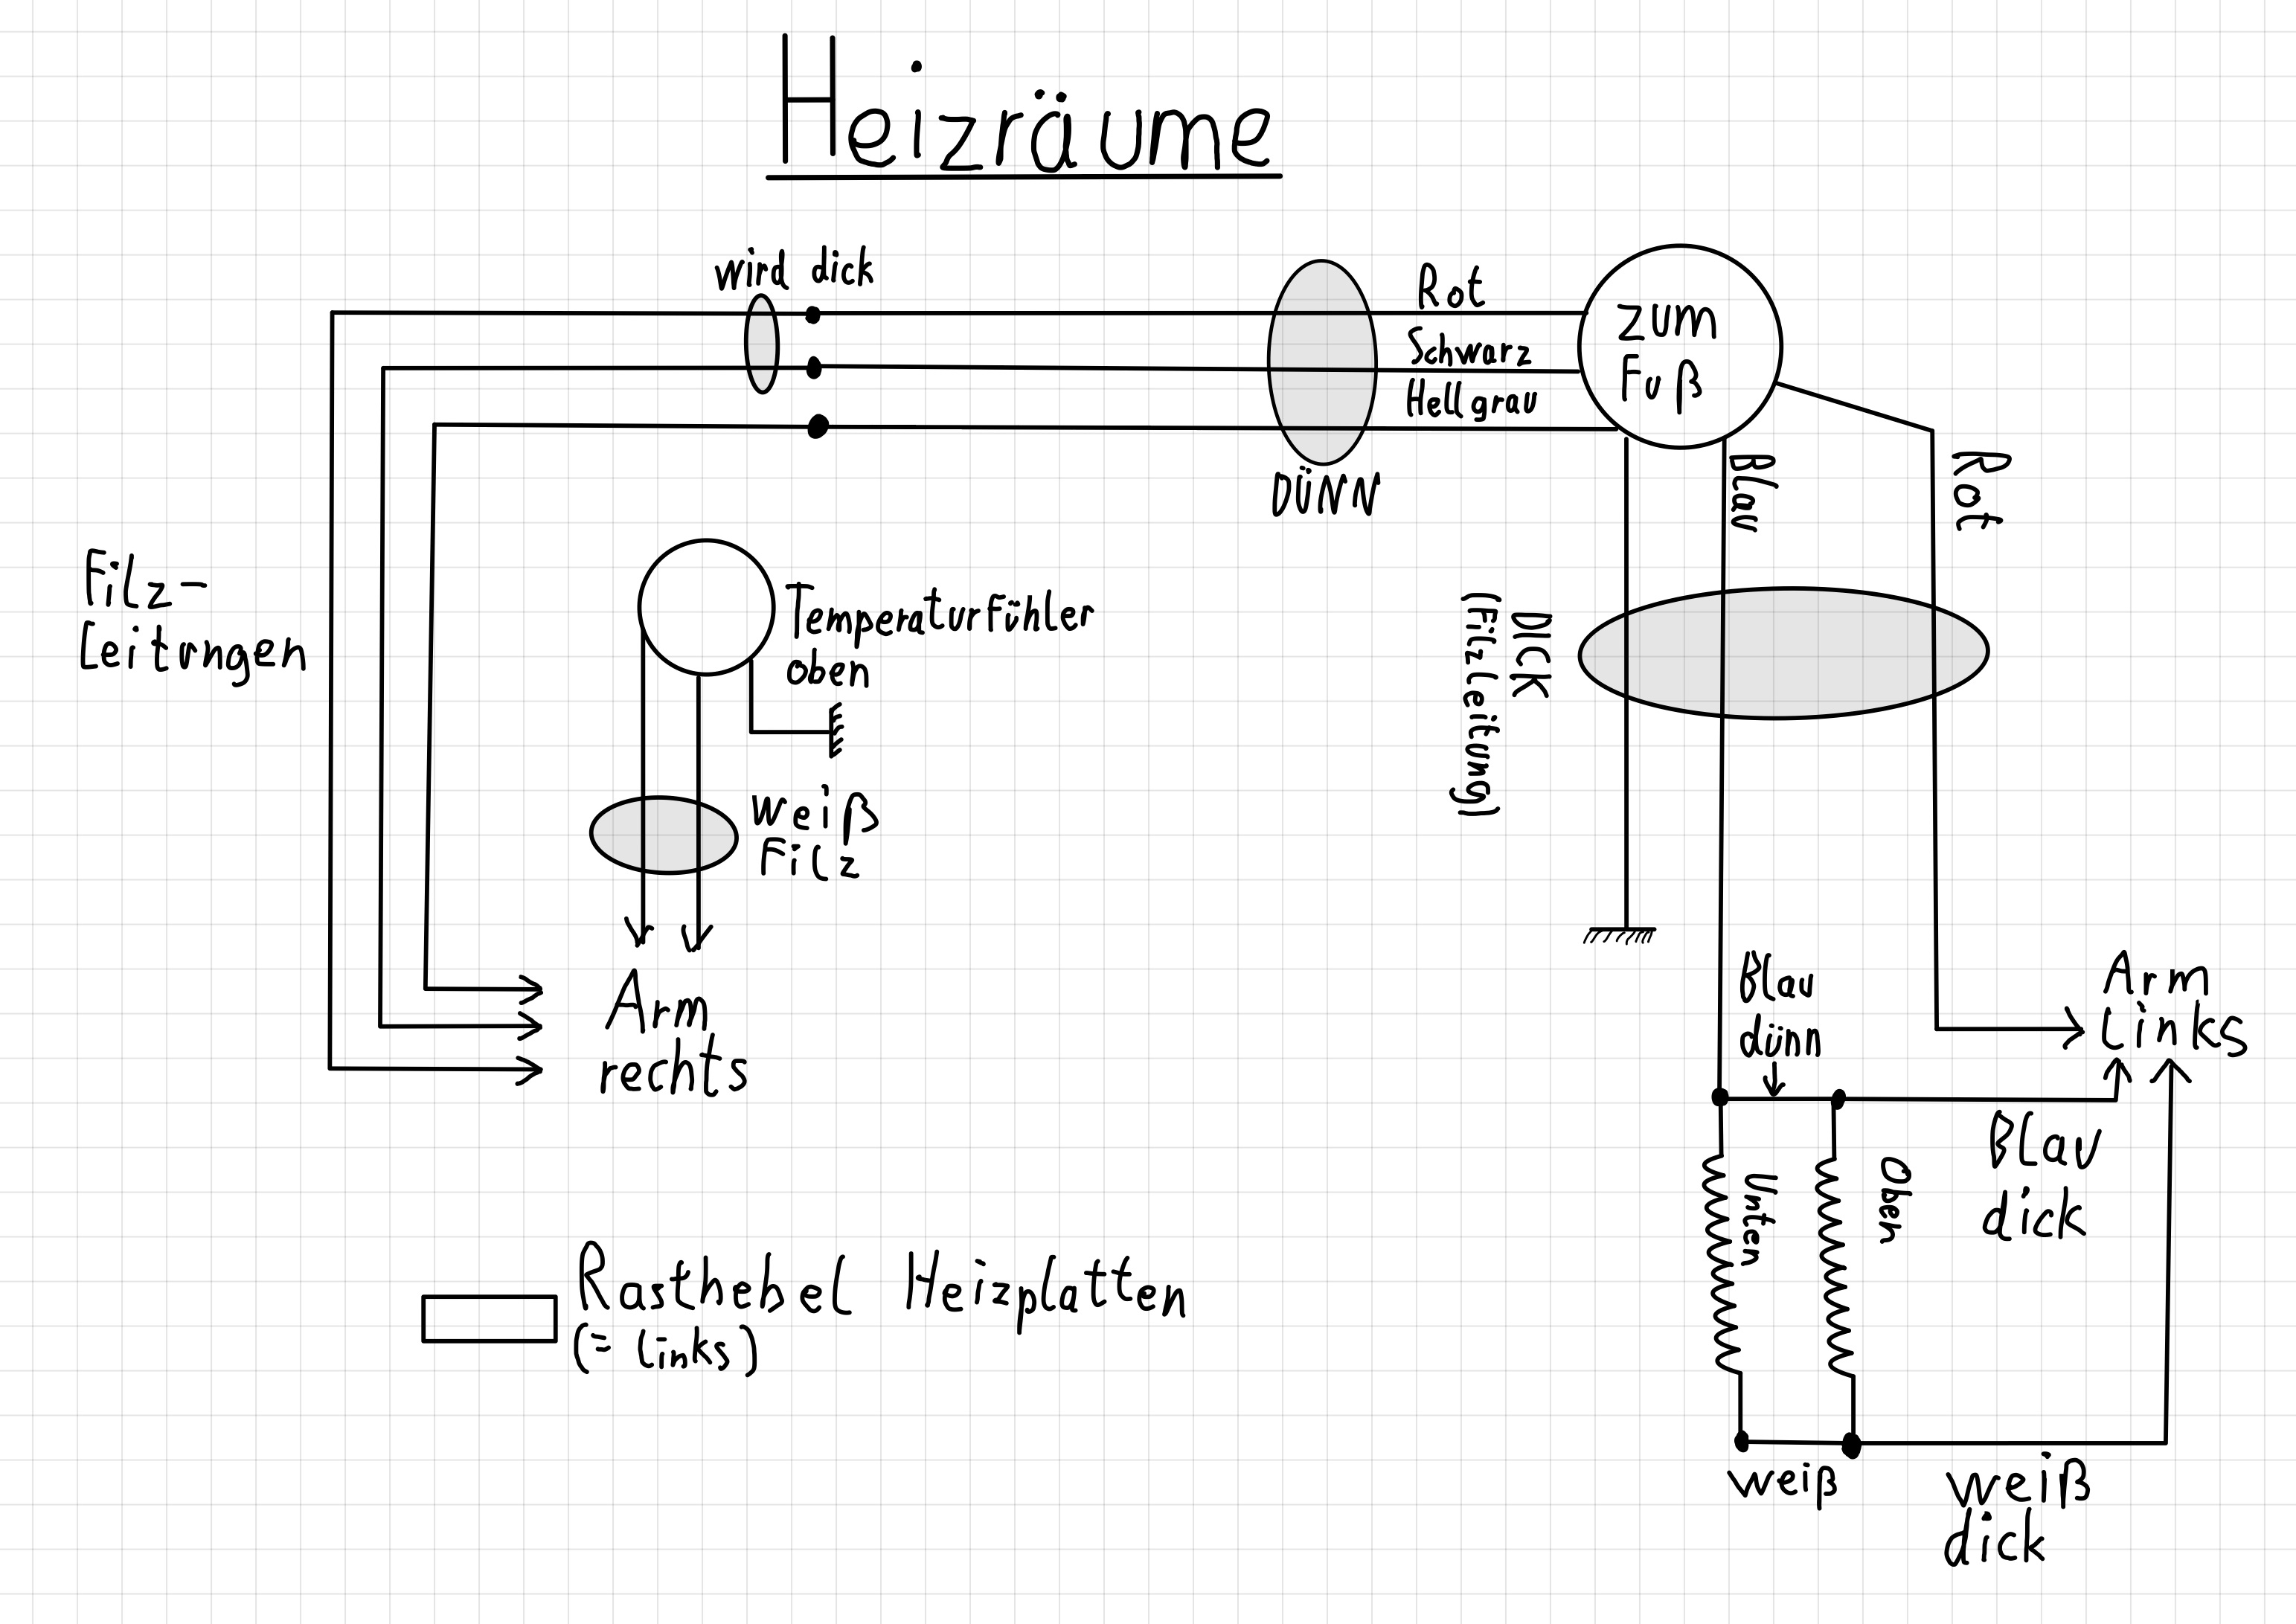 Heizräume
wird dick
Rot
Schwarz
Hellgrau
DÜNN
zum
Fuß
Blau
Rot
Filz-
Leitungen
Temperaturfühler
oben
DICK
(Filzleitung)
weiß
Filz
Arm
rechts
Blau
dünn
Arm
Links
Blau
dick
Unten
Oben
Rasthebel Heizplatten
(= links)
weiß
weiß
dick